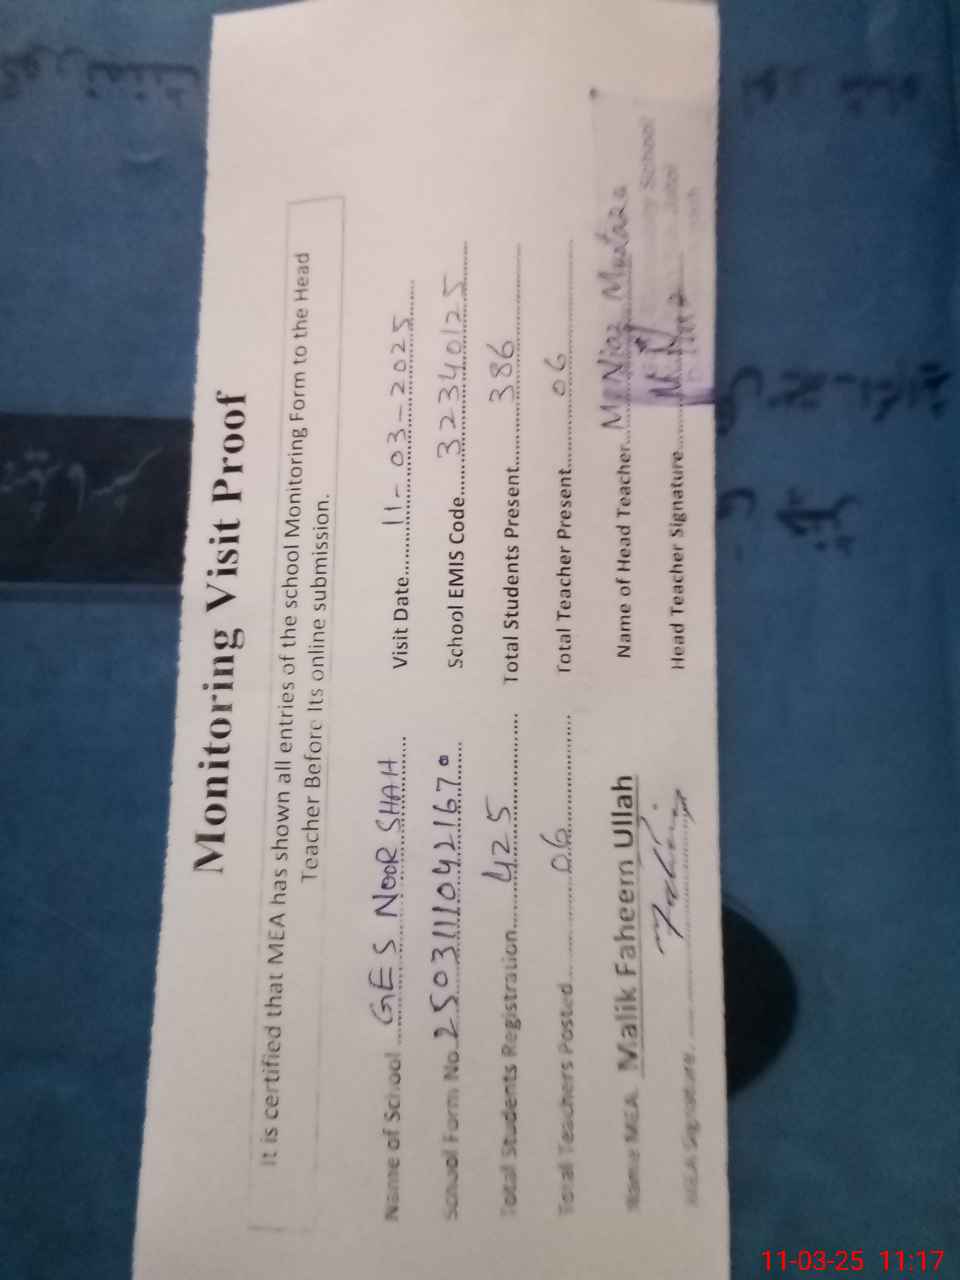 Monitoring Visit Proof
It is certified that MEA has shown all entries of the school Monitoring Form to the Head
Teacher Before Its online submission.
Name of School ...GES NOOR SHAH...... Visit Date............11-03-2025........
School Form No..25031110421670...... School EMIS Code......32340125........
Total Students Registration......425............ Total Students Present..........386............
Total Teachers Posted..........06............ Total Teacher Present..........06............
Name MEA. Malik Faheem Ullah Name of Head Teacher...
MEA Signature. Head Teacher Signature......
School
11-03-25 11:17